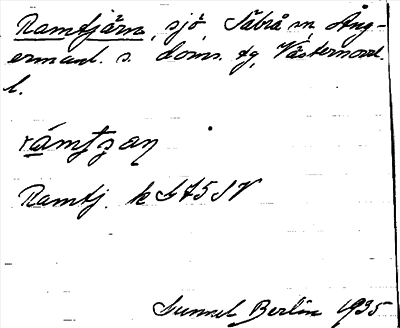 Ramtjärn, sjö, Säbrå sn, Ång-
ermanl. s. doms. tg, Västernorrl.
l.
Ramtj. k
Gunnel Berlin 1935